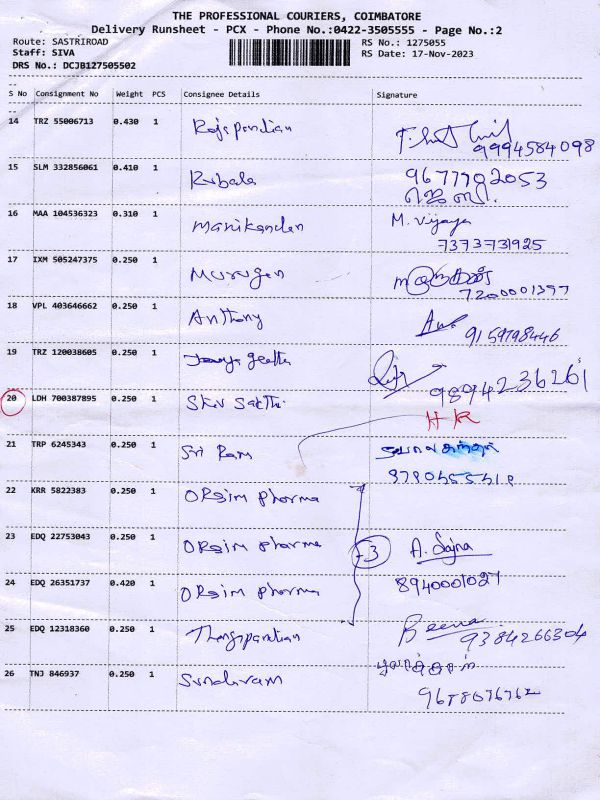 THE PROFESSIONAL COURIERS, COIMBATORE
Delivery Runsheet - PCX - Phone No.:0422-3505555 - Page No.:2
Route: SASTRIROAD
Staff: SIVA
DRS No.: DCJB127505502
RS No.: 1275055
RS Date: 17-Nov-2023
S No Consignment No Weight PCS Consignee Details Signature
14 TRZ 55006713 0.430 1 Rajapandian
9994584098
15 SLM 332856061 0.410 1 Kubala 9677902053
16 MAA 104536323 0.310 1 Manikandan M. Vijaya
7373731925
17 IXM 505247375 0.250 1 Murugan முருகன்
7200001397
18 VPL 403646662 0.250 1 Anthony
9159798446
19 TRZ 120038605 0.250 1 geetha
9894236261
20 LDH 700387895 0.250 1 Shiv Sakthi HR
21 TRP 6245343 0.250 1 Sri Ram
22 KRR 5822383 0.250 1 ORgim Pharma
23 EDQ 22753043 0.250 1 ORgim Pharma 3 A. Sajna
24 EDQ 26351737 0.420 1 ORgim Pharma 8940001027
25 EDQ 12318360 0.250 1 Thangapandian Beena
9384266304
26 TNJ 846937 0.250 1 Sundaram
9678076762